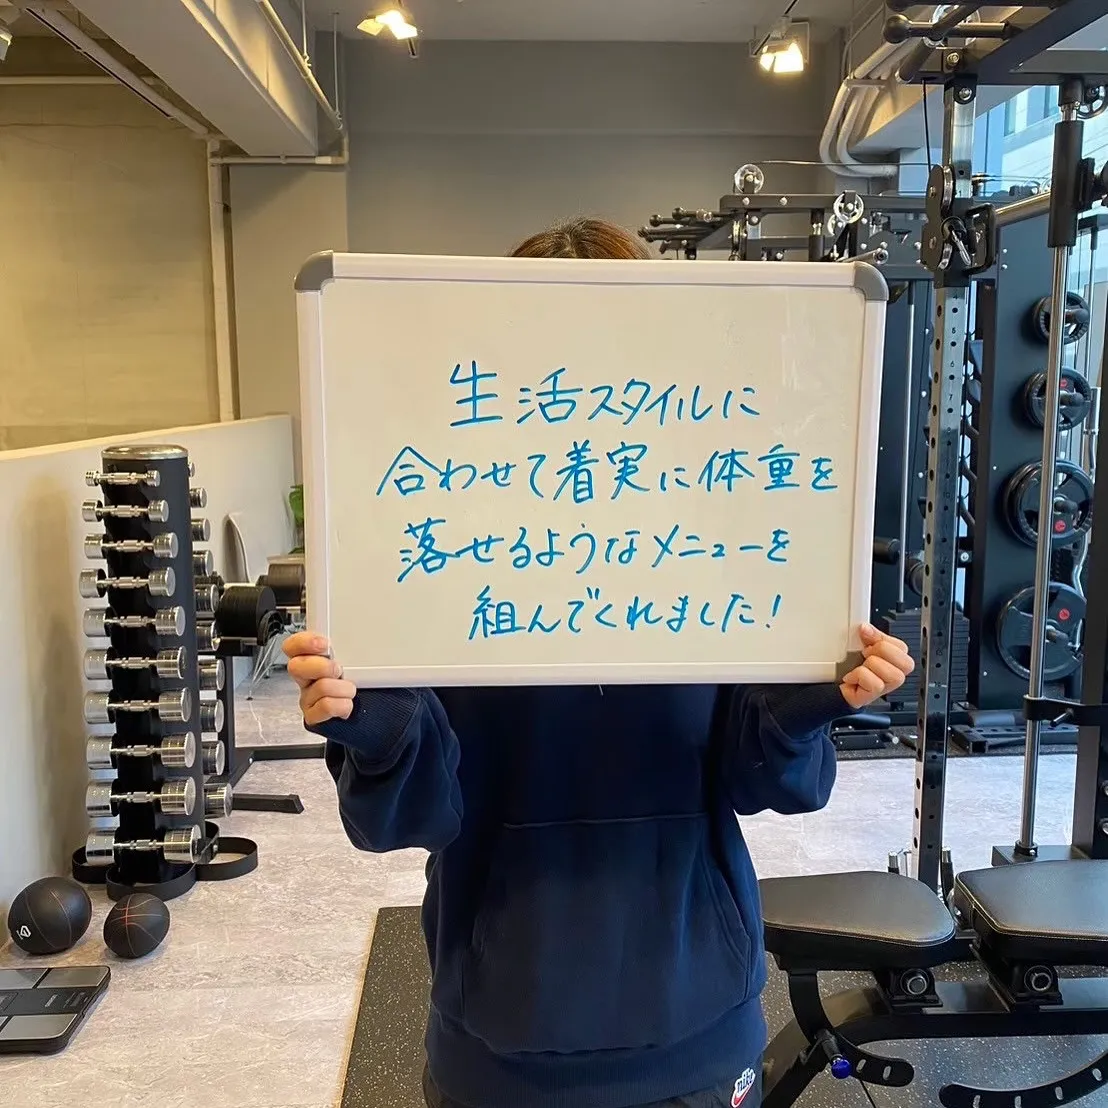 生活スタイルに
合わせて着実に体重を
落せるようなメニューを
組んでくれました！
nike